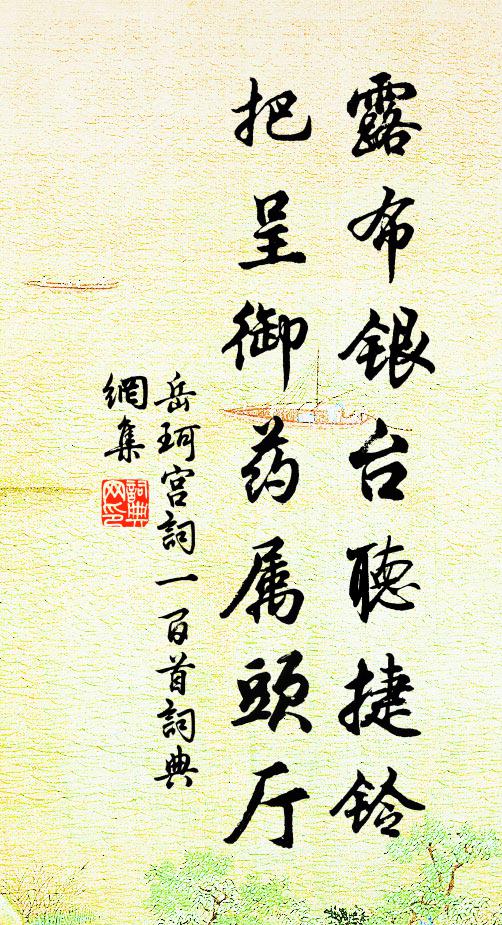 露布银台聽捷铃
把呈御药属頭厅
岳珂宫詞一百首詞典
網集
詞典
网印